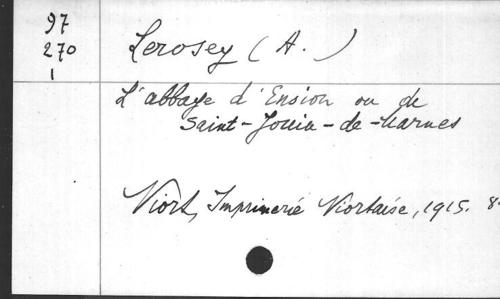 97
270
1
Lerosey (A.)
L'abbaye d'Ension ou de
Saint-Jouin-de-Marnes
Niort, Imprimerie Niortaise, 1915. 8.